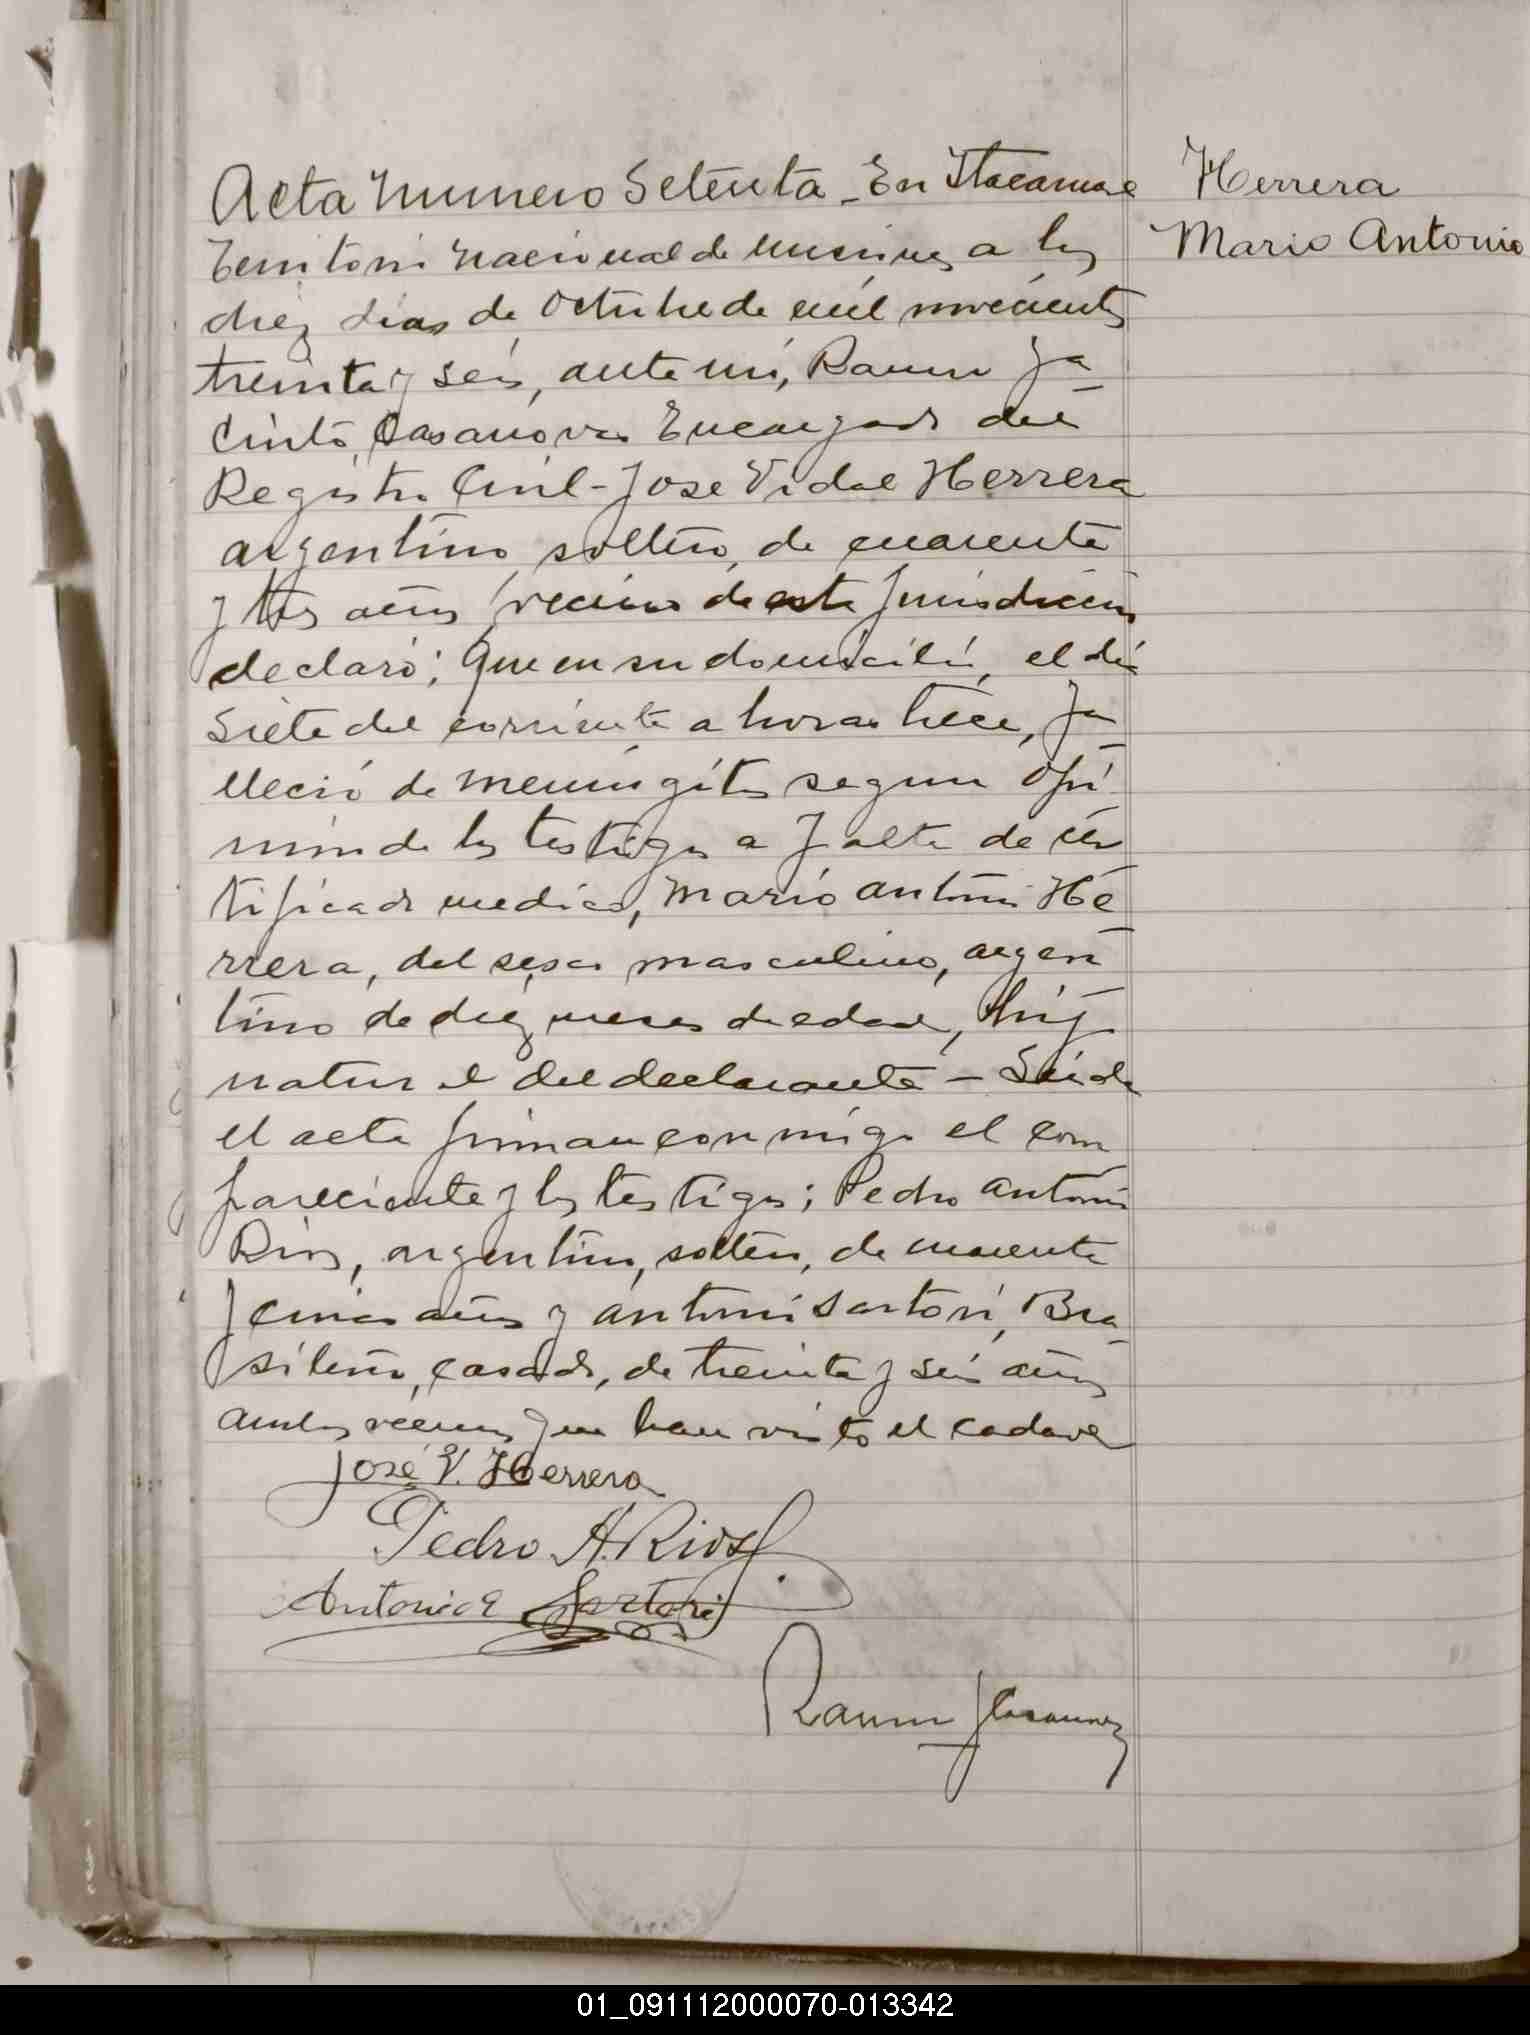 Acta Numero Setenta - En Itacaruare
Herrera
Mario Antonio
Territorio Nacional de Misiones a los
diez dias de Octubre de mil novecientos
treinta y seis, ante mi, Ramon Ja-
cinto Casanova Encargado del
Registro Civil - Jose Vidal Herrera
argentino, soltero, de cuarenta
y tres años, vecino de esta jurisdiccion
declaró; Que en su domicilio, el dia
siete del corriente a horas trece, fa-
lleció de meningitis segun opi-
nion de los testigos a falta de cer-
tificado medico, Mario Antonio He-
rrera, del sexo masculino, argen-
tino de diez meses de edad, hijo
natural del declarante - Leida
el acta firman conmigo el com-
pareciente y los testigos; Pedro Antonio
Rios, argentino, soltero, de cuarenta
y cinco años y Antonio Sartori, Bra-
sileño, casado, de treinta y seis años
ambos vecinos que han visto el cadaver
José V. Herrera
Pedro A. Rios
Antonio E Sartori
Ramon J Casanova
01_091112000070-013342